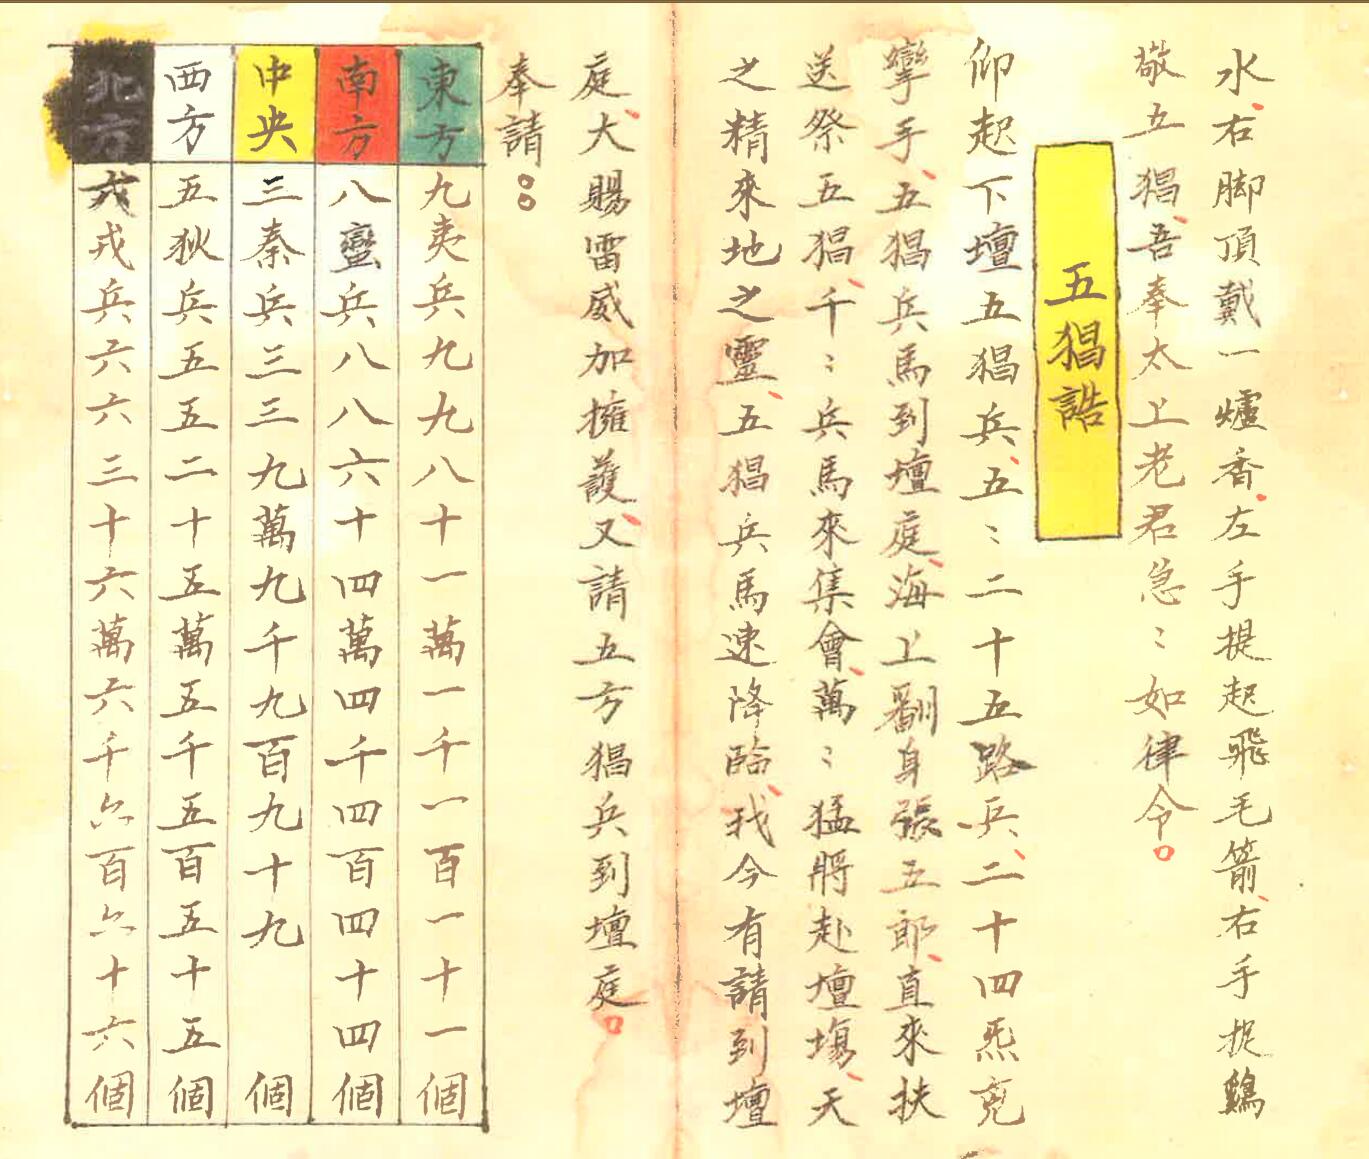 水、右脚頂戴一爐香、左手提起飛毛箭、右手捉鷄
敬五猖、吾奉太上老君急〻如律令。
五猖誥
仰起下壇五猖兵、五〻二十五路兵、二十四炁兗
攣手、五猖兵馬到壇庭、海上翻身張五郎、直來扶
送祭五猖、千〻兵馬來集會、萬〻猛將赴壇場、天
之精來地之靈、五猖兵馬速降臨、我今有請到壇
庭、大賜雷威加擁護、又請五方猖兵到壇庭。
奉請。。
東方 九夷兵九九八十一萬一千一百一十一個
南方 八蠻兵八八六十四萬四千四百四十四個
中央 三秦兵三三九萬九千九百九十九個
西方 五狄兵五五二十五萬五千五百五十五個
北方 戎兵六六三十六萬六千六百六十六個